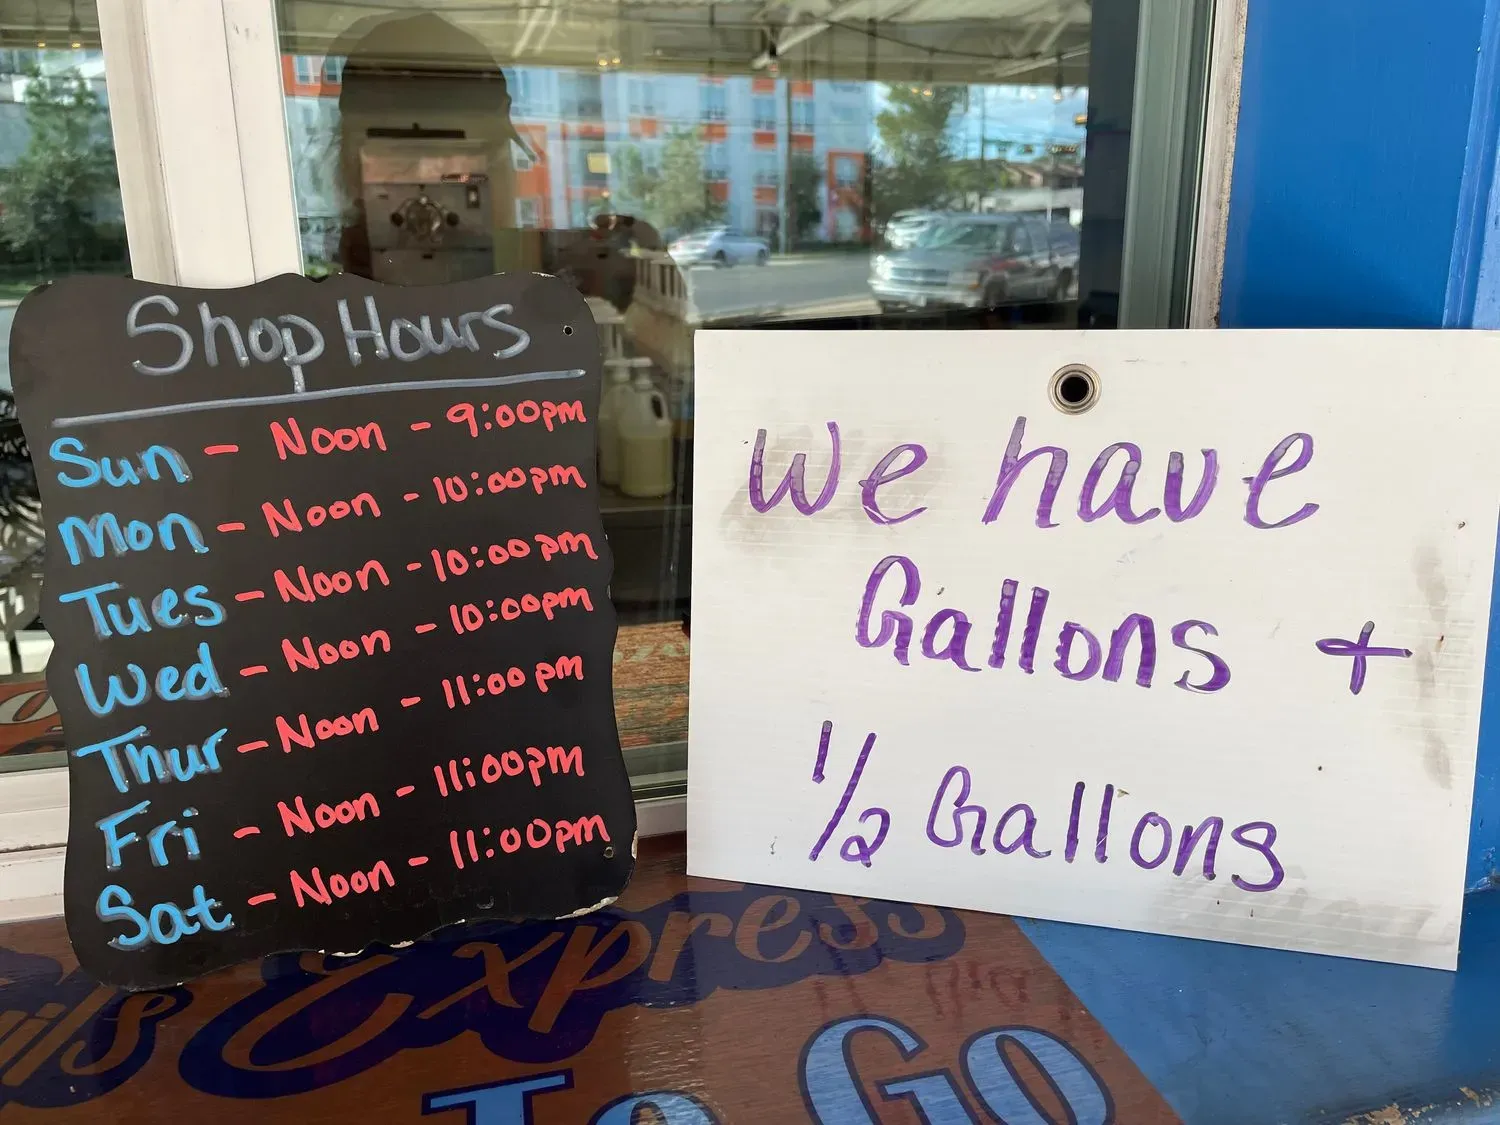 Shop Hours
Sun - Noon - 9:00pm
Mon - Noon - 10:00pm
Tues - Noon - 10:00pm
Wed - Noon - 10:00pm
Thur - Noon - 11:00pm
Fri - Noon - 11:00pm
Sat - Noon - 11:00pm
We have
Gallons +
1/2 Gallons
Express
To Go